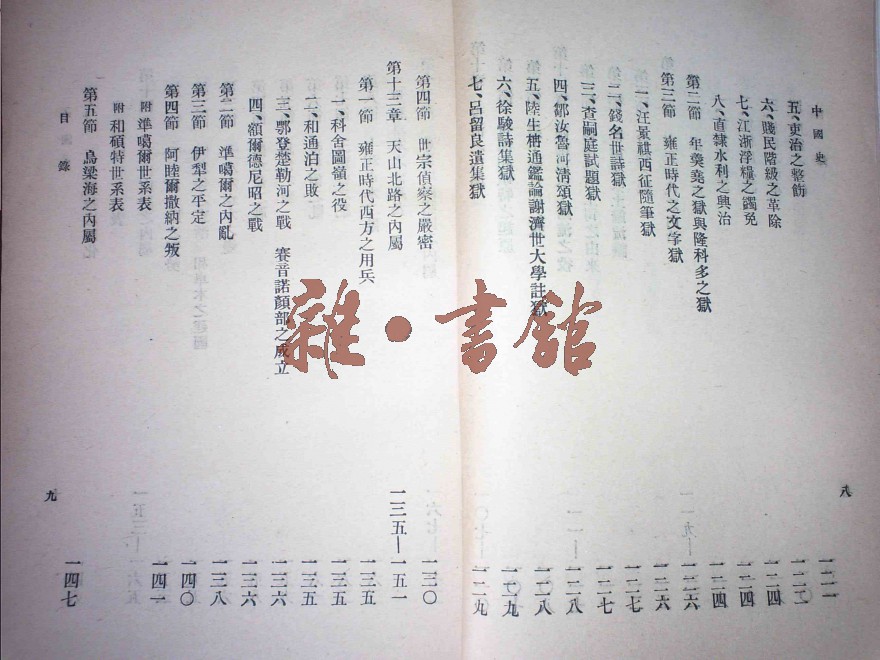 中國史
八
五、吏治之整飭 一二一
六、賤民階級之革除 一二二
七、江浙浮糧之蠲免 一二四
八、直隸水利之興治 一二四
第二節 年羹堯之獄與隆科多之獄 一二四
第三節 雍正時代之文字獄 一二六
一、汪景祺西征隨筆獄 一二六
二、錢名世詩獄 一二七
三、查嗣庭試題獄 一二七
四、鄒汝魯河清頌獄 一二八
五、陸生楠通鑑論謝濟世大學註獄 一二八
六、徐駿詩集獄 一二九
七、呂留良遺集獄 一二九
第四節 世宗偵察之嚴密 一三〇
第十三章 天山北路之內屬 一三五—一五一
第一節 雍正時代西方之用兵 一三五
一、科舍圖嶺之役 一三五
二、和通泊之敗 一三五
三、鄂登楚勒河之戰 賽音諾顏部之成立 一三六
四、額爾德尼昭之戰 一三六
第二節 準噶爾之內亂 一三八
第三節 伊犁之平定 一四〇
第四節 阿睦爾撒納之叛 一四一
附 準噶爾世系表
附 和碩特世系表
第五節 烏梁海之內屬 一四七
目錄
九
雜·書館